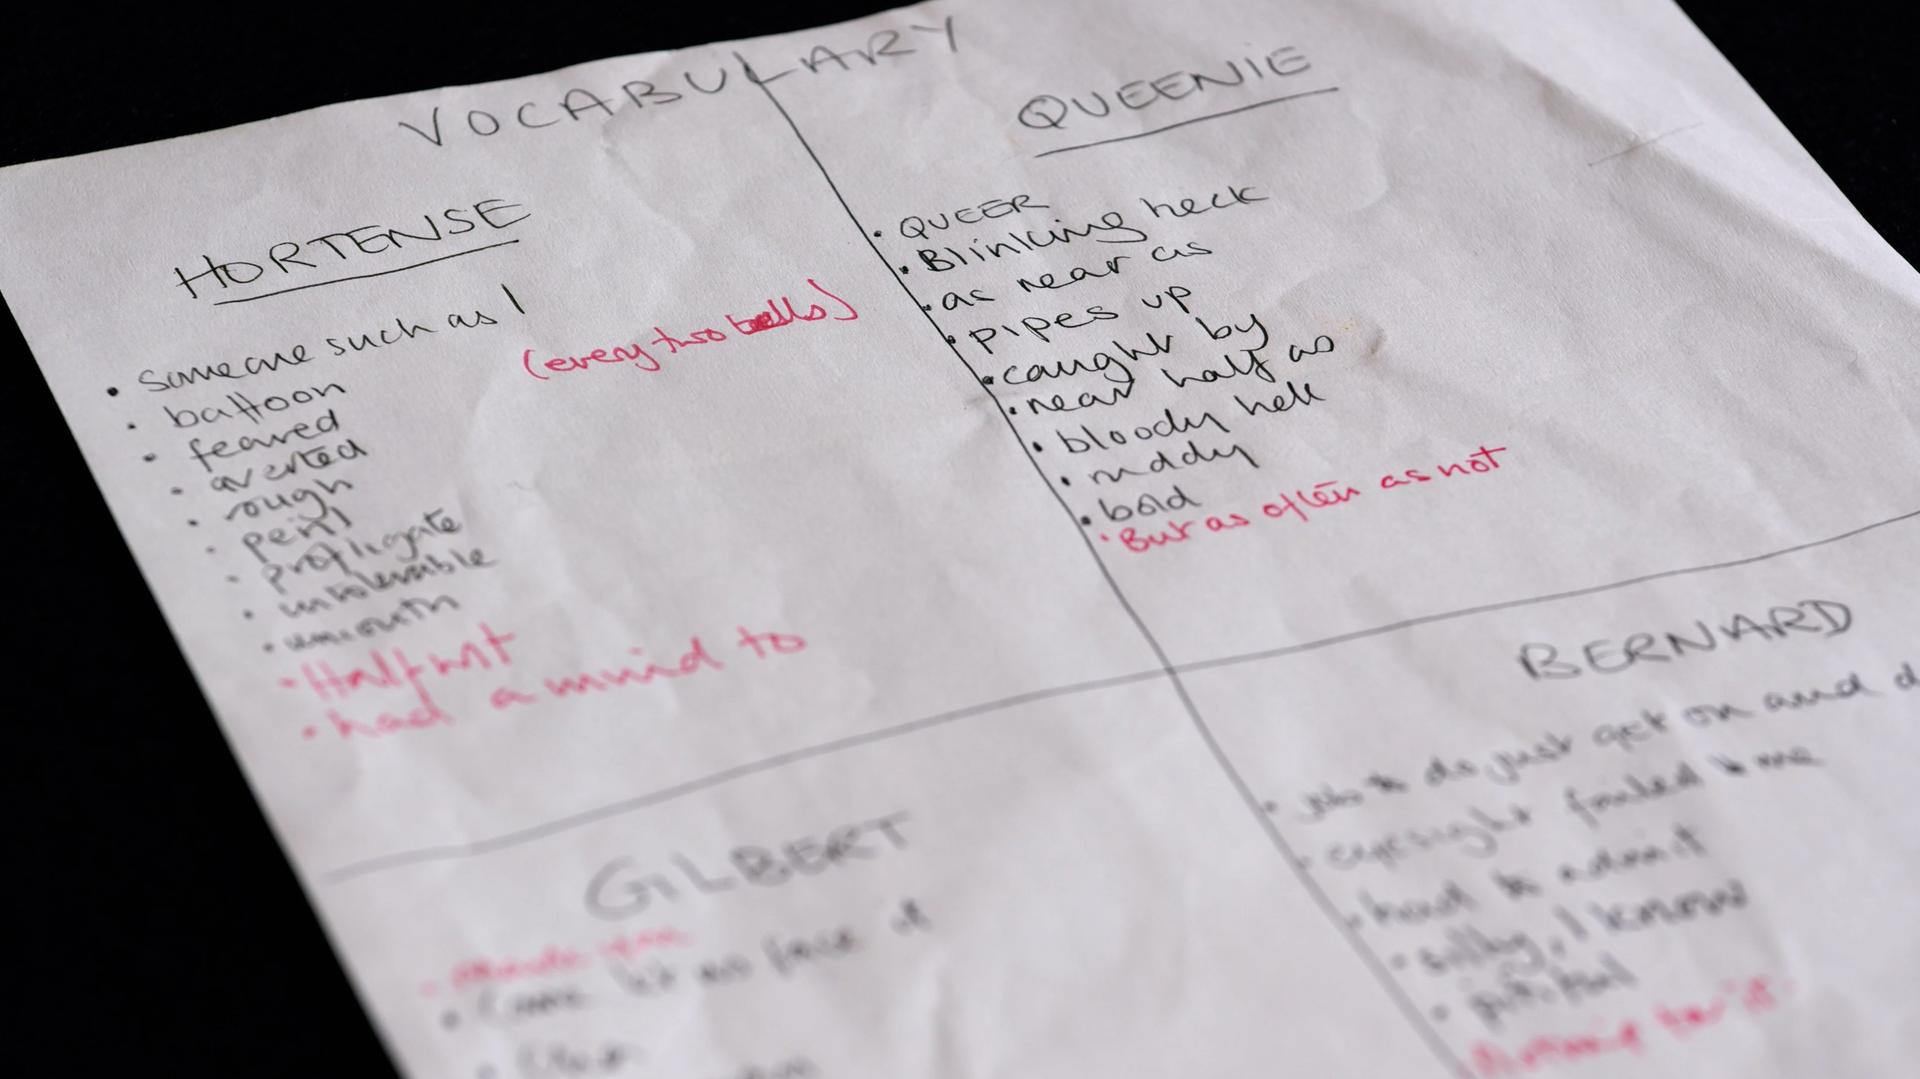 VOCABULARY
HORTENSE
someone such as I
(every two bells)
battoon
feared
averted
rough
peril
profligate
intolerable
uncouth
Halfwit
had a mind to
QUEENIE
QUEER
Blinking heck
as near as
pipes up
caught by
near half as
bloody hell
ruddy
bold
But as often as not
GILBERT
let us face it
BERNARD
jobs to do just get on and d
eyesight failed me
had to admit
silly, I know
pitiful
for it